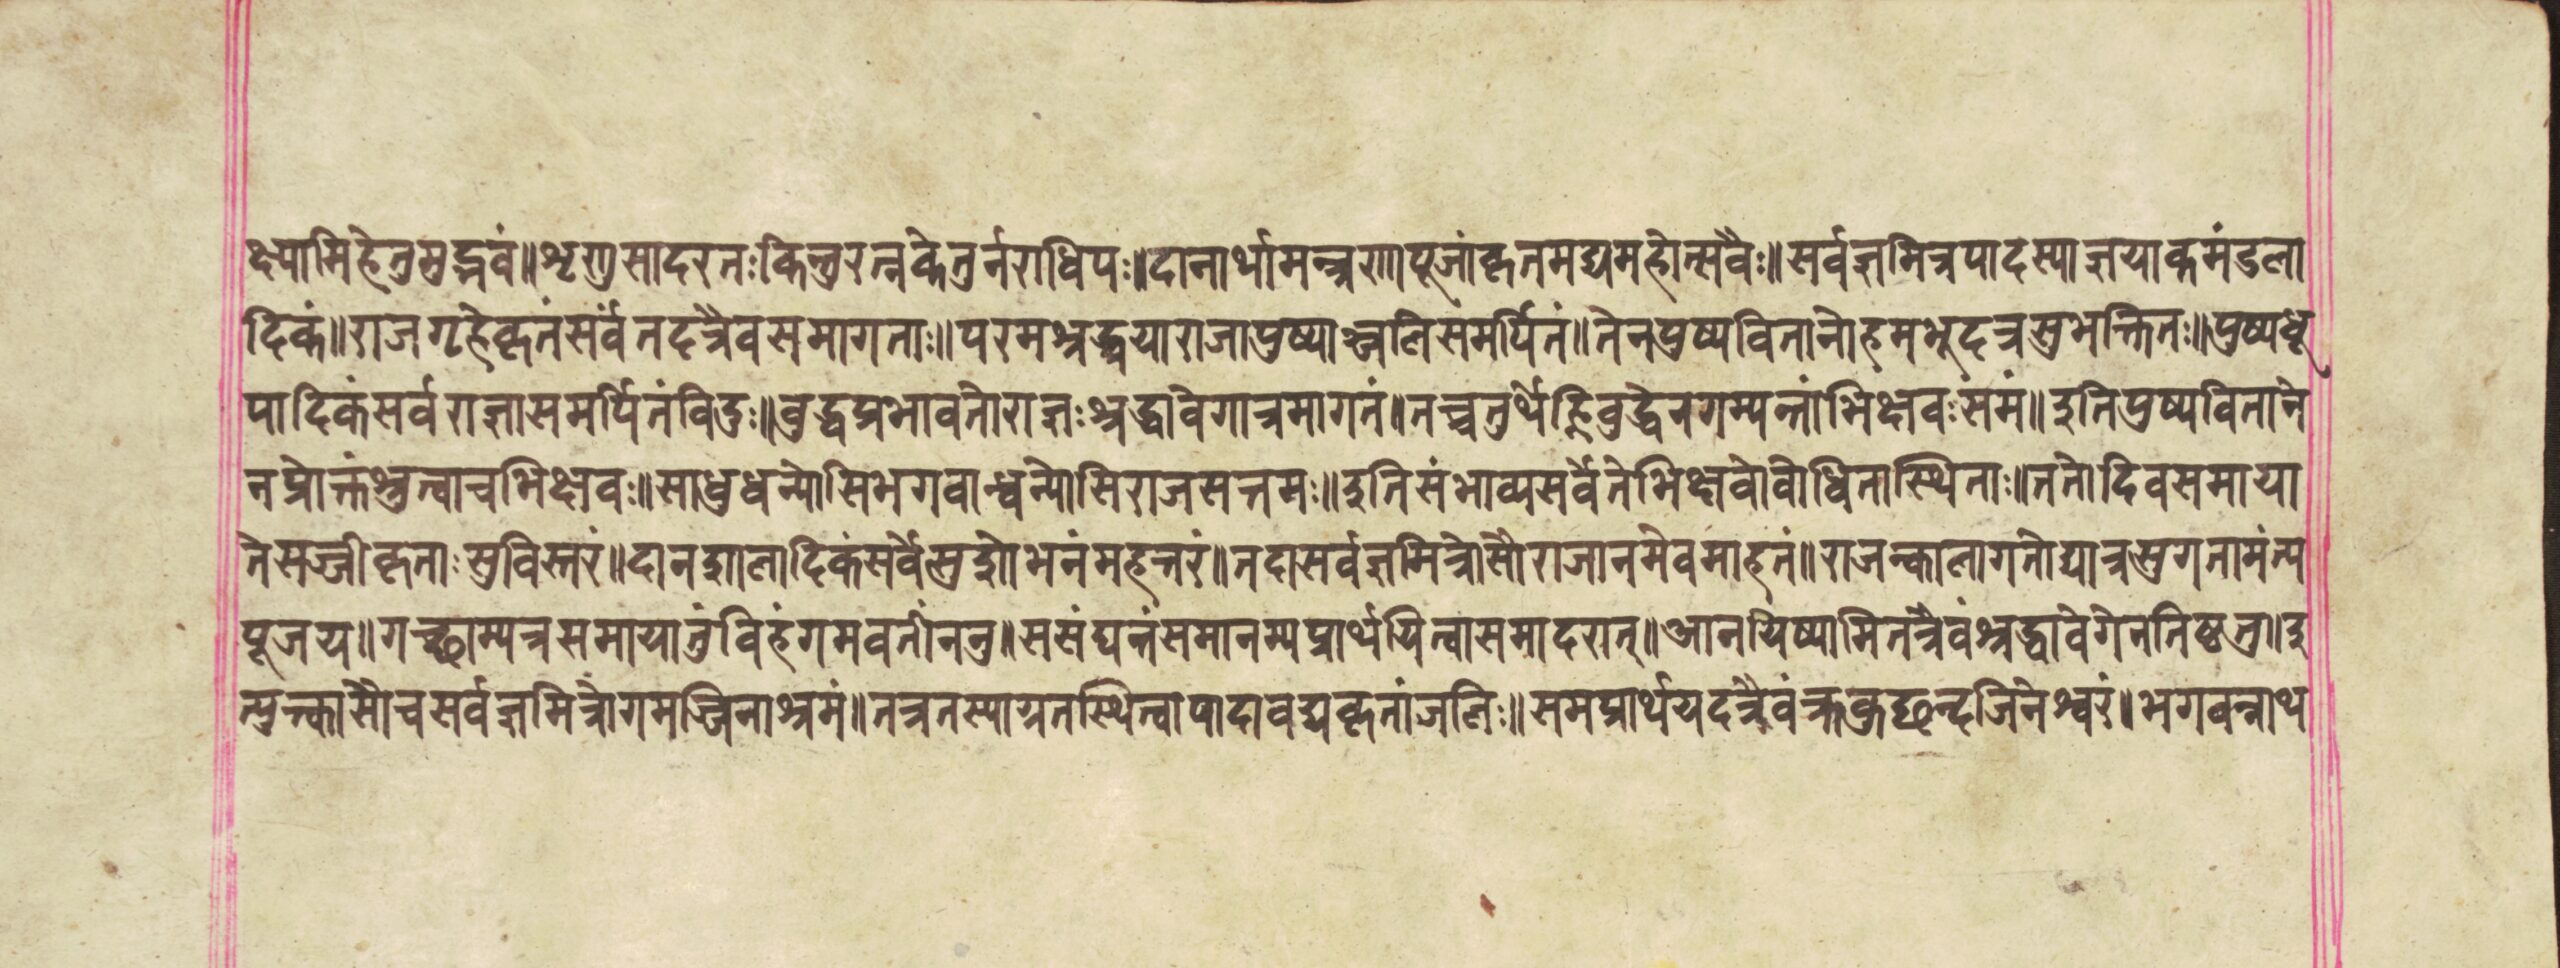 क्ष्यामिहेतुमुद्भवं॥शृणुसादरतःकिन्तुरत्नकेतुर्नराधिपः॥दानार्थामन्त्रणापूजांकृतमद्यमहोत्सवैः॥सर्वज्ञमित्रपादस्याज्ञयाक्तमंडला
दिकं॥राजगृहेकृतंसर्वंतदत्रैवसमागताः॥परमश्रद्धयाराजापुष्पाञ्जलिसमर्पितं॥तेनपुष्पवितानोहमभूदत्रसुभक्तितः॥पुष्पधू
पादिकंसर्वराज्ञासमर्पितंविदुः॥बुद्धप्रभावतोराज्ञःश्रद्धावेगात्रमागतं॥तच्चतुर्थेह्निबुद्धेनगम्यन्तांभिक्षवःसमं॥इतिपुष्पविताने
नप्रोक्तंश्रुत्वाचभिक्षवः॥साधुधन्योसिभगवान्धन्योसिराजसत्तमः॥इतिसंभाव्यसर्वेतेभिक्षवोबोधितास्थिताः॥ततोदिवसमाया
तेसज्जीकृताःसुविस्तरं॥दानशालादिकंसर्वंसुशोभनंमहत्तरं॥तदासर्वज्ञमित्रोसौराजानमेवमाहतं॥राजन्कालागतोद्यात्रसुगतामंत्य
पूजय॥गच्छाम्यत्रसमायातुंविहंगमवतींननु॥ससंघन्तंसमानम्यप्रार्थयित्वासमादरात्॥आनयिष्यामितत्रैवंश्रद्धावेगेनतिष्ठत्र॥इ
त्युक्त्वासौचसर्वज्ञमित्रोगमज्जिनाश्रमं॥तत्रतस्याग्रतस्थित्वापादावद्यकृतांजलिः॥समप्रार्थयदत्रैवंक्रकुच्छन्दजिनेश्वरं॥भगवन्नाथ